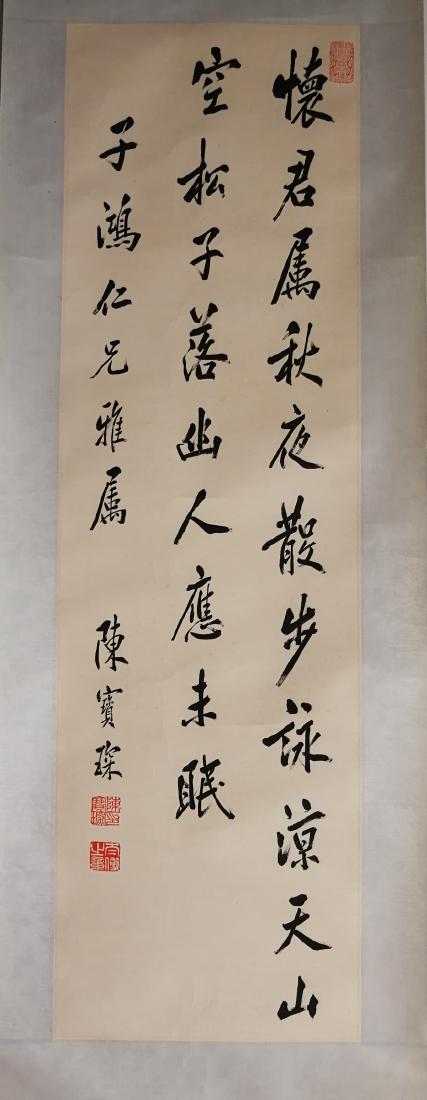 懷君属秋夜散步詠涼天山
空松子落幽人應未眠
子鴻仁兄雅属
陳寶琛